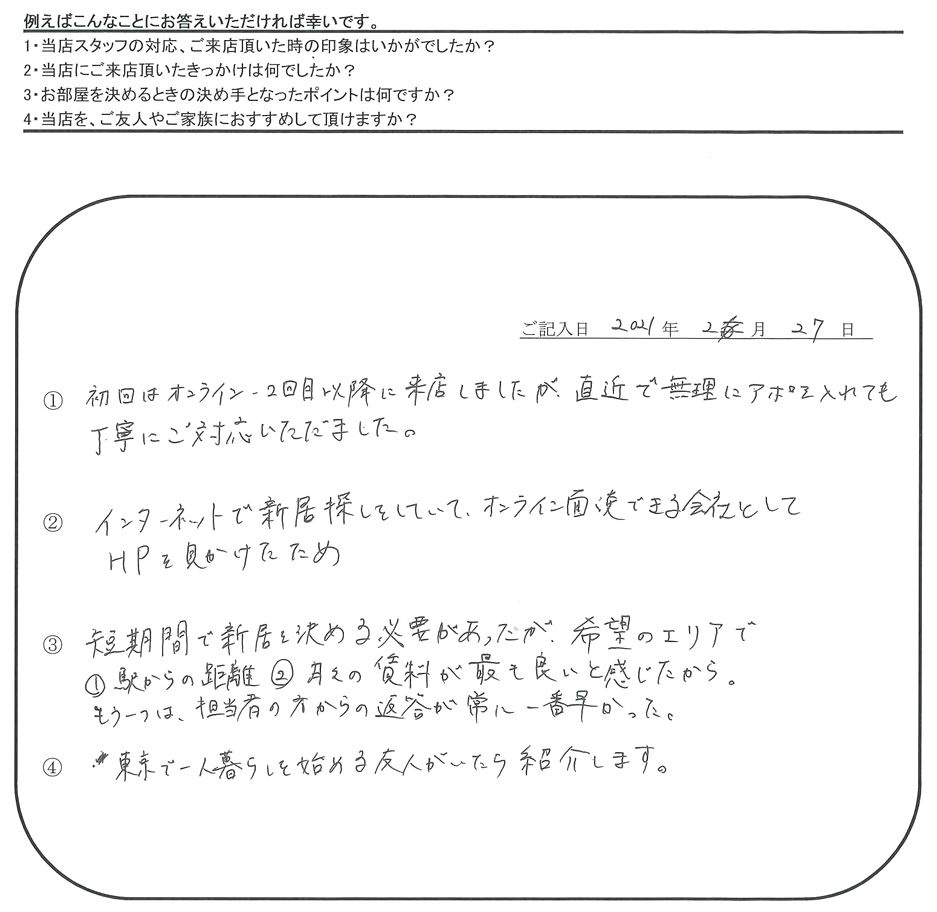 例えばこんなことにお答えいただければ幸いです。
1・当店スタッフの対応、ご来店頂いた時の印象はいかがでしたか？
2・当店にご来店頂いたきっかけは何でしたか？
3・お部屋を決めるときの決め手となったポイントは何ですか？
4・当店を、ご友人やご家族におすすめして頂けますか？
ご記入日 2021年 2月 27日
① 初回はオンライン、2回目以降に来店しましたが、直近で無理にアポを入れても
丁寧にご対応いただだました。
② インターネットで新居探しをしていて、オンライン面談できる会社として
HPを見かけたため
③ 短期間で新居を決める必要があったが、希望のエリアで
①駅からの距離 ②月々の賃料が最も良いと感じたから。
もう一つは、担当者の方からの返答が常に一番早かった。
④ 東京で一人暮らしを始める友人がいたら紹介します。